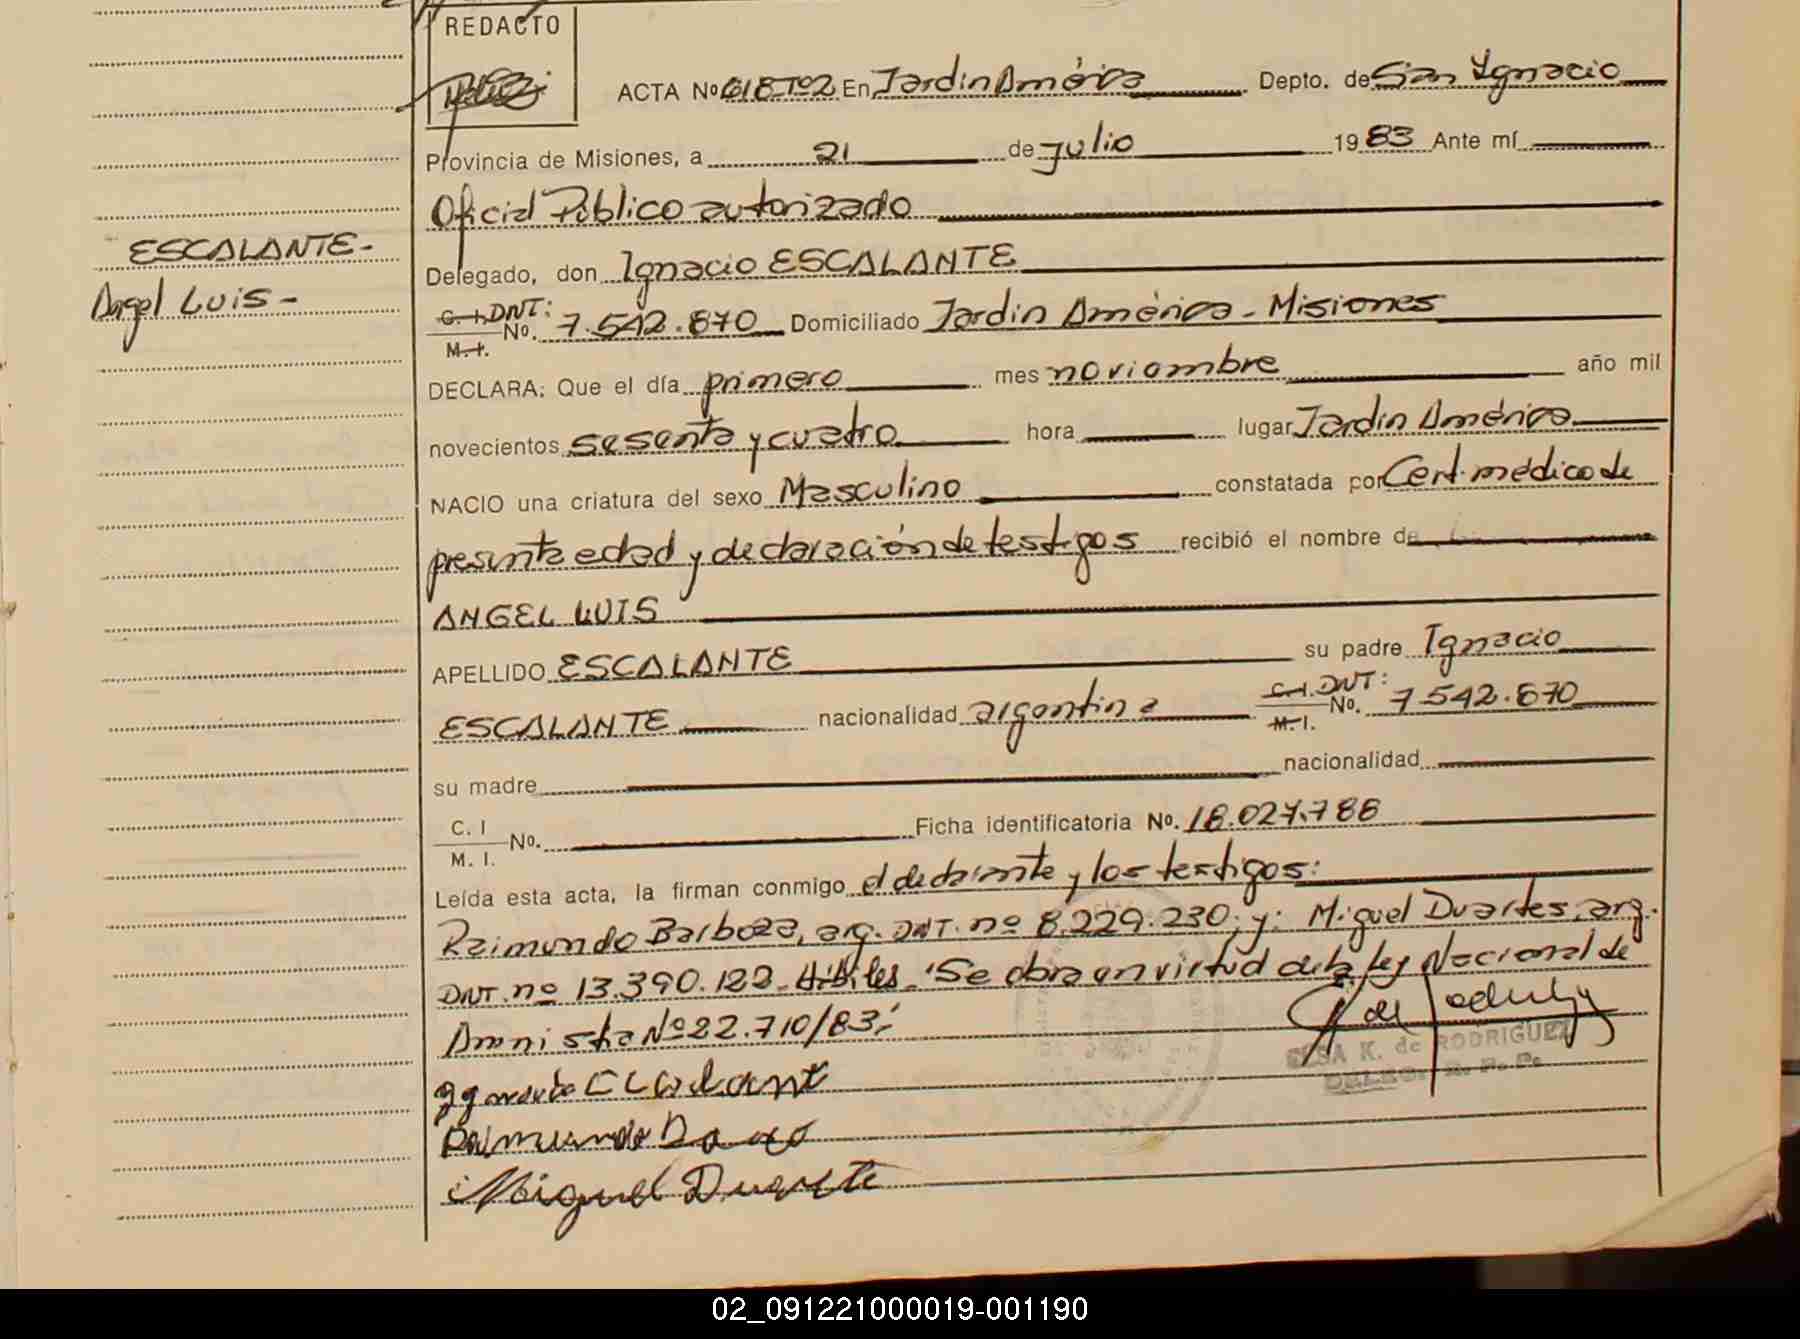 REDACTO
ACTA Nº 618 Tº2 En Jardin América Depto. de San Ignacio
Provincia de Misiones, a 21 de Julio 1983 Ante mí
Oficial Público autorizado
ESCALANTE-
Delegado, don Ignacio ESCALANTE
Angel Luis-
C. I. DNT:
M. I. No. 7.542.870 Domiciliado Jardin América - Misiones
DECLARA: Que el día primero mes noviembre año mil
novecientos sesenta y cuatro hora lugar Jardin América
NACIO una criatura del sexo Masculino constatada por Cert. médico de
presunta edad y declaración de testigos recibió el nombre de
ANGEL LUIS
APELLIDO ESCALANTE su padre Ignacio
ESCALANTE nacionalidad argentina C. I. DNT: M. I. No. 7.542.870
su madre nacionalidad
C. I
M. I. No. Ficha identificatoria No. 18.027.788
Leída esta acta, la firman conmigo el declarante y los testigos:
Raimundo Barboza, arg. DNT. nº 8.229.230; y: Miguel Duartes, arg.
DNT. nº 13.390.122 - Hábiles - "Se obra en virtud de la Ley Nacional de
Amnistia Nº 22.710/83"
K. de RODRIGUEZ
Miguel Duarte
02_091221000019-001190